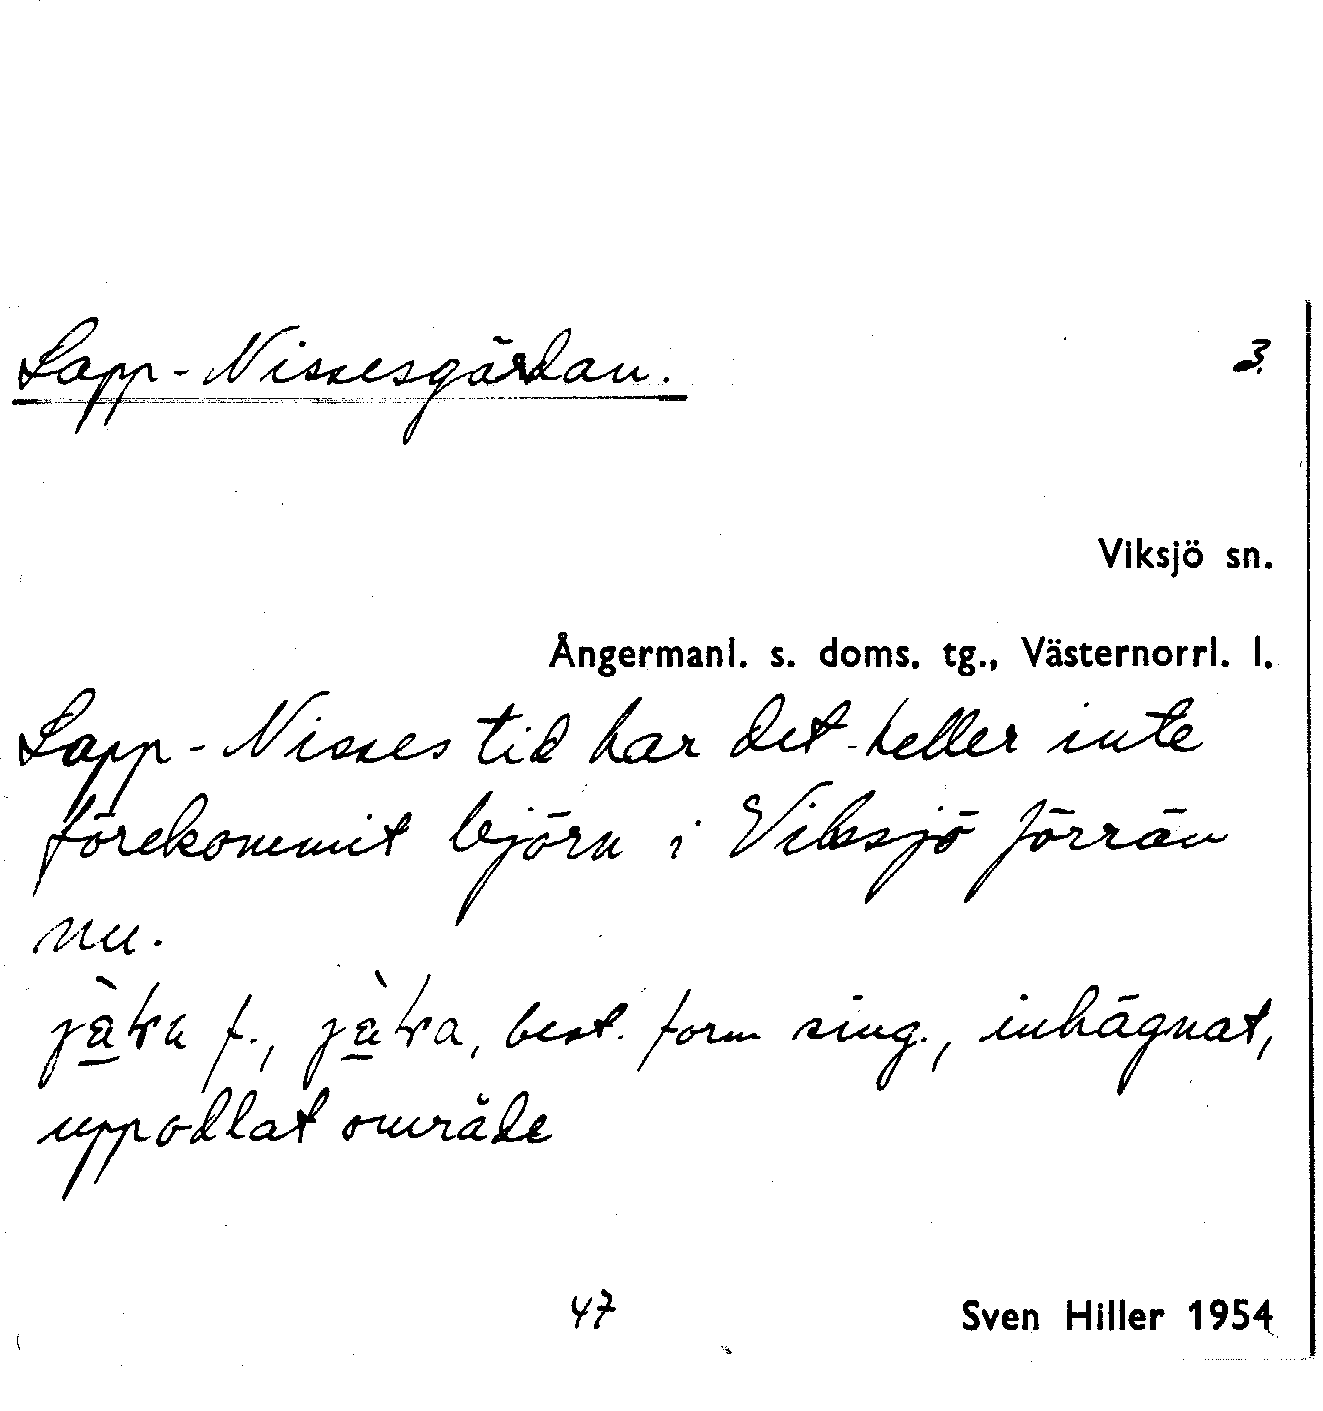 Lapp-Nissesgärdan.
3.
Viksjö sn.
Ångermanl. s. doms. tg., Västernorrl. l.
Lapp-Nisses tid har det heller inte
förekommit björn i Viksjö förrän
nu.
f., best. form sing., inhägnat,
uppodlat område
47
Sven Hiller 1954